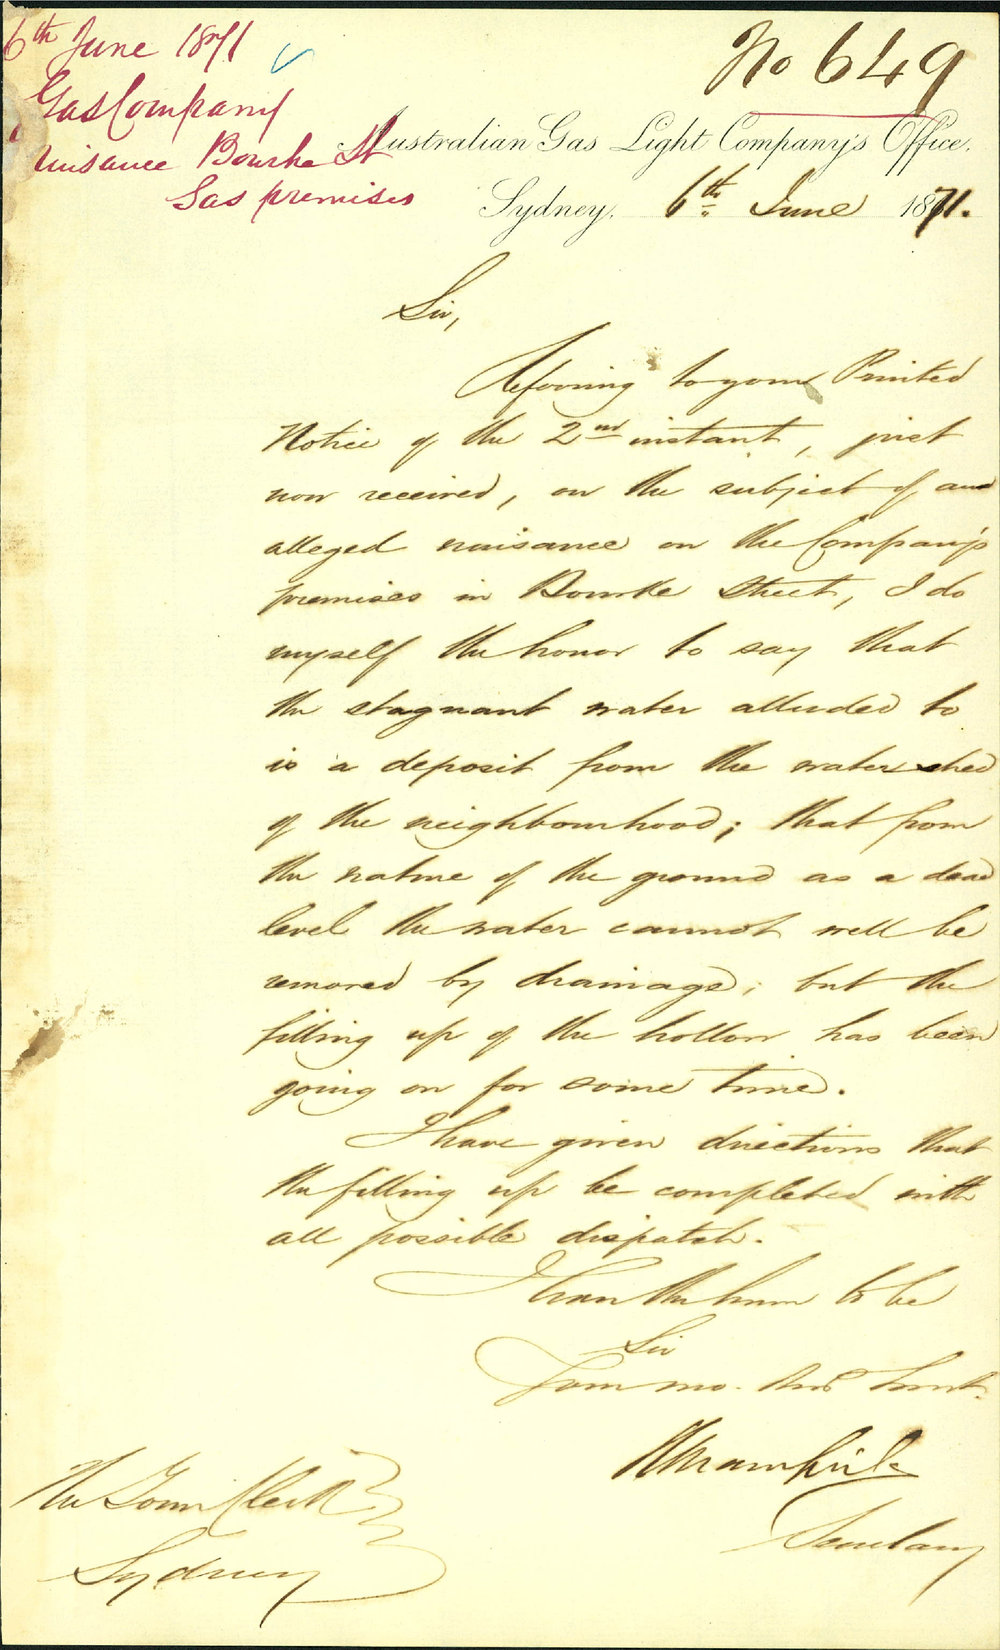 6th June 1871
Gas Company
nuisance Bourke St
Gas premises
No 649
Australian Gas Light Company's Office.
Sydney. 6th June 1871.
Sir,
Referring to your Printed
Notice of the 2nd instant, just
now received, on the subject of an
alleged nuisance on the Company's
premises in Bourke Street, I do
myself the honor to say that
the stagnant water alluded to
is a deposit from the water shed
of the neighbourhood; that from
the nature of the ground as a dead
level the water cannot well be
removed by drainage; but the
filling up of the hollow has been
going on for some time.
I have given directions that
the filling up be completed with
all possible dispatch.
I have the honor to be
Sir
Your mo. Obt Servt.
Secretary
The Town Clerk
Sydney